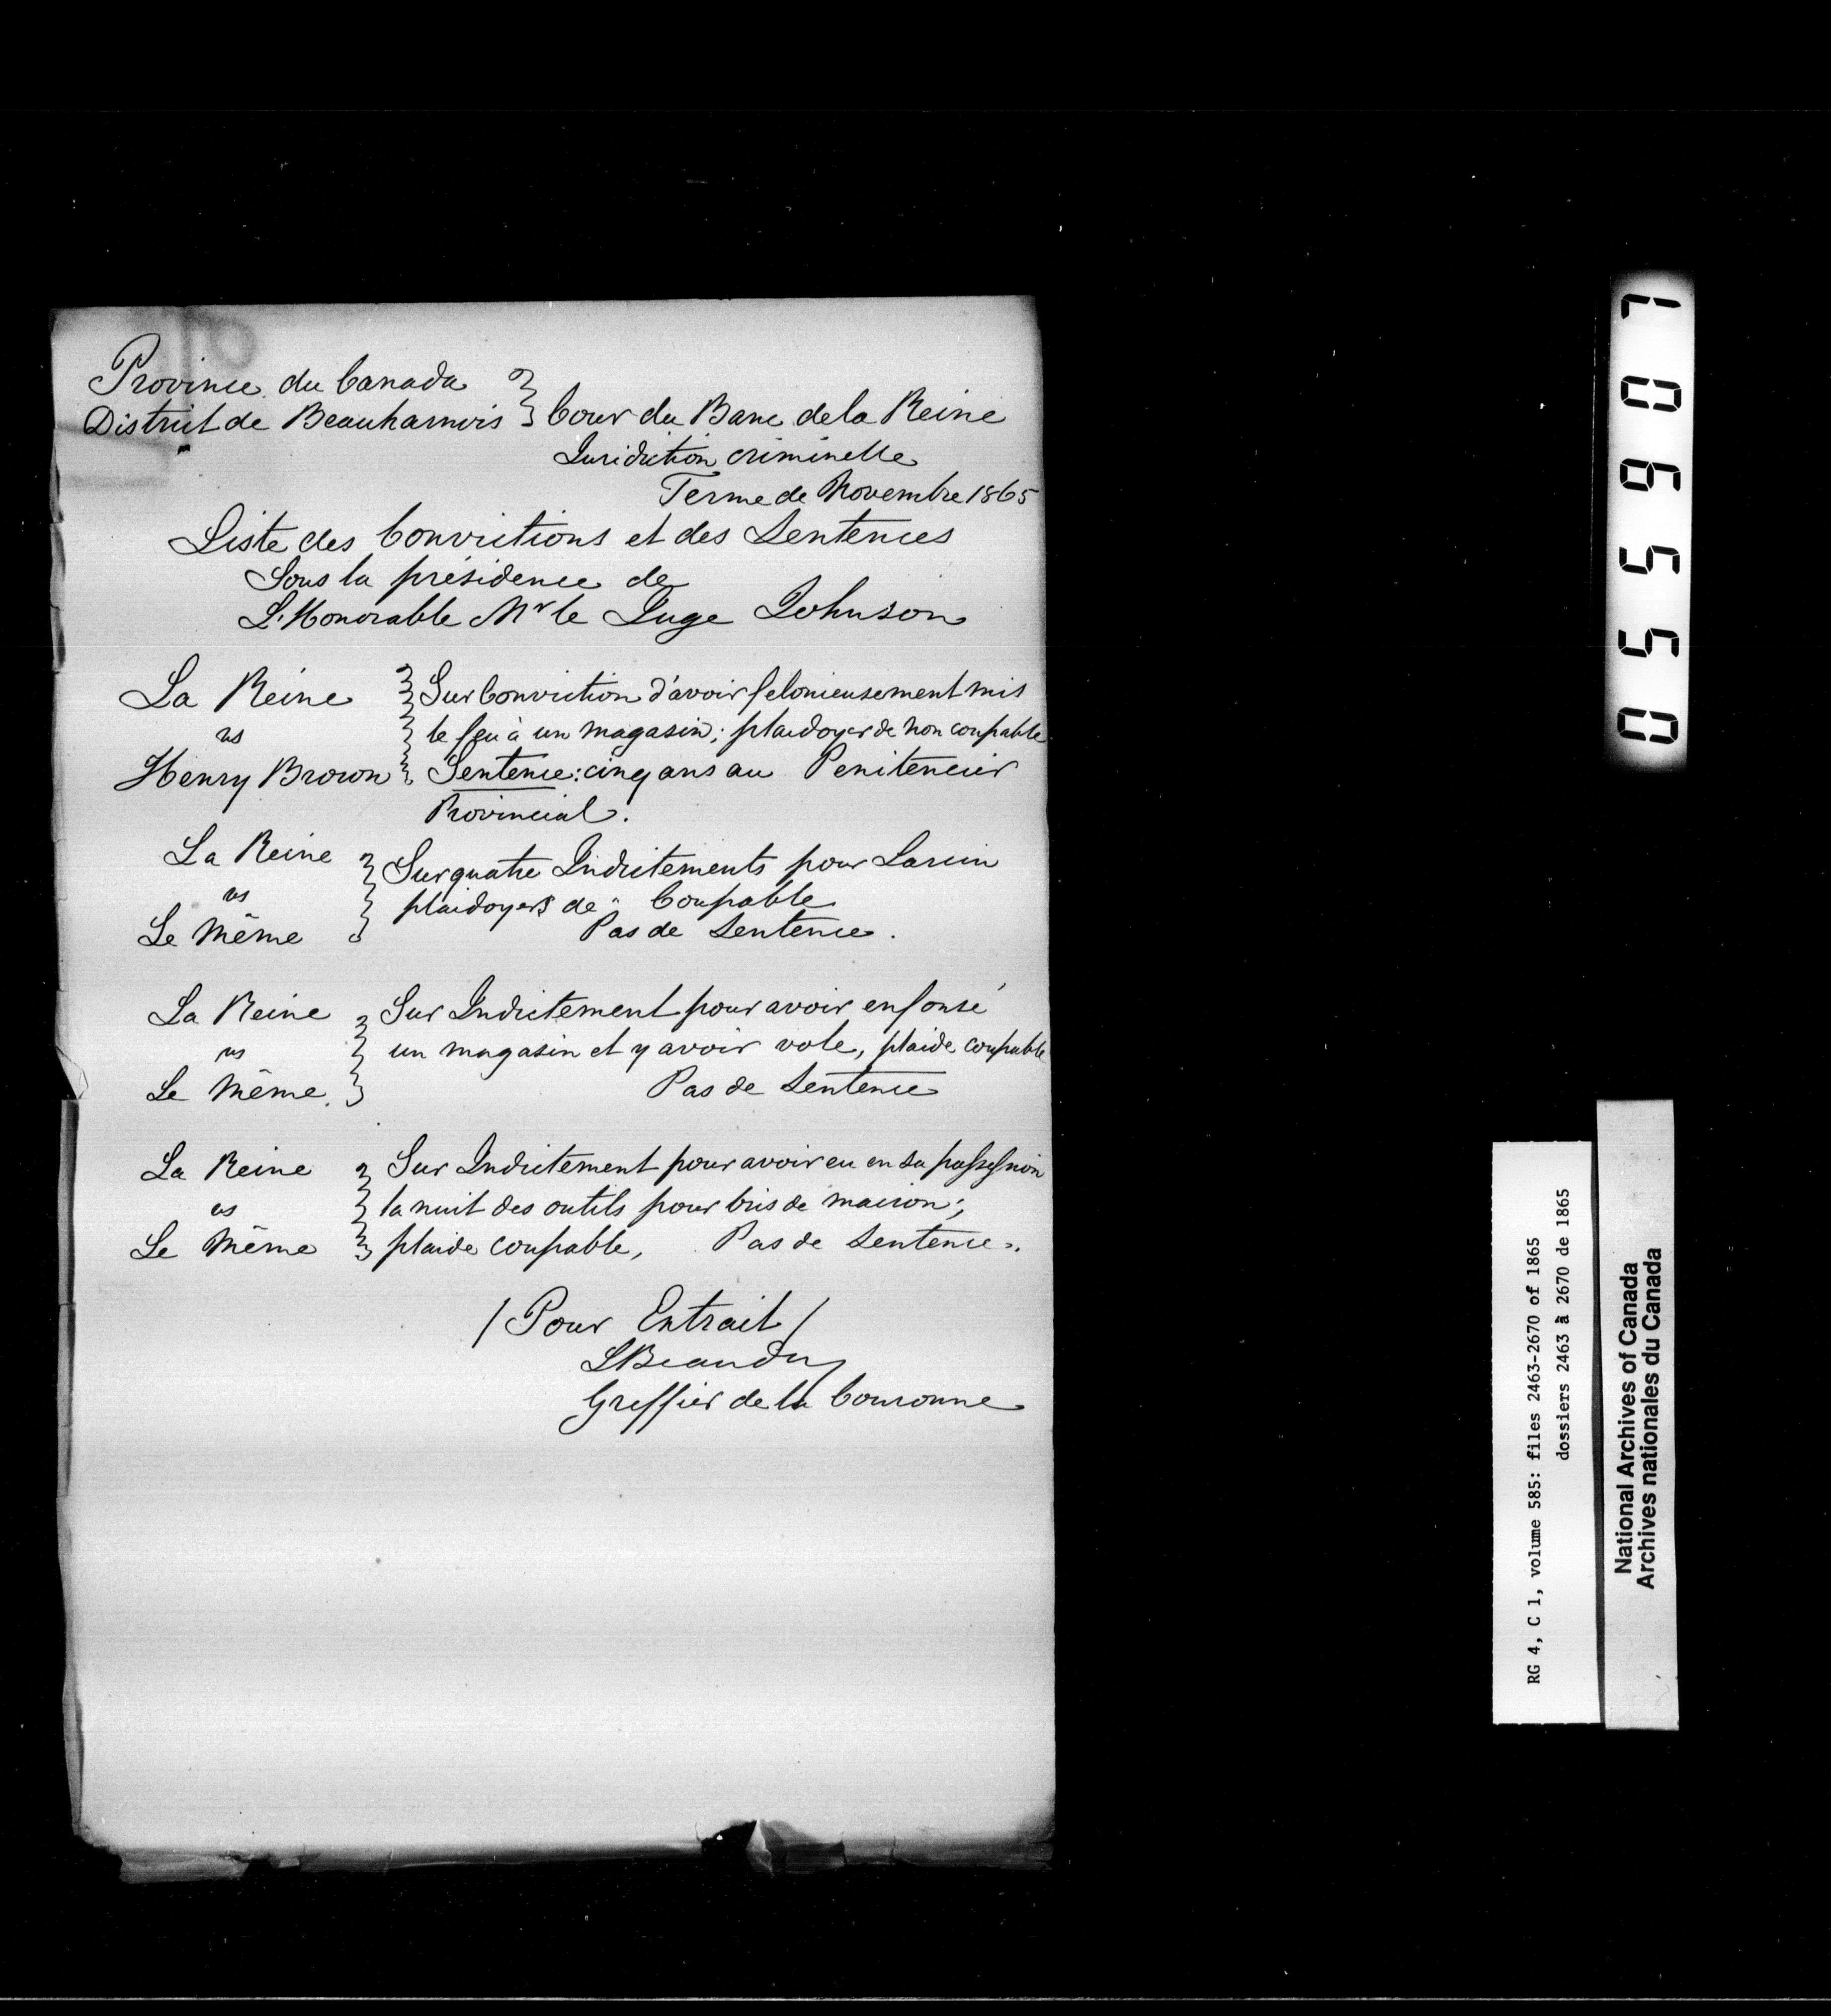 Province du Canada
District de Beauharnois } Cour du Banc de la Reine
Juridiction criminelle
Terme de Novembre 1865
Liste des Convictions et des Sentences
Sous la présidence de
L'Honorable Mr le Juge Johnson
La Reine } Sur Conviction d'avoir felonieusement mis
vs le feu à un magasin; plaidoyer de non coupable
Henry Brown Sentence: cinq ans au Penitencier
Provincial.
La Reine } Sur quatre Indictements pour Larcin
vs plaidoyers de " Coupable
Le Même Pas de Sentence.
La Reine } Sur Indictement pour avoir enfonsé
vs un magasin et y avoir vole, plaide coupable
Le Même. Pas de Sentence
La Reine } Sur Indictement pour avoir eu en sa possession
vs la nuit des outils pour bris de maison;
Le Même plaide coupable, Pas de Sentence.
/ Pour Extrait /
LBeaudry
Greffier de la Couronne
055907
RG 4, C 1, volume 585: files 2463-2670 of 1865
dossiers 2463 à 2670 de 1865
National Archives of Canada
Archives nationales du Canada